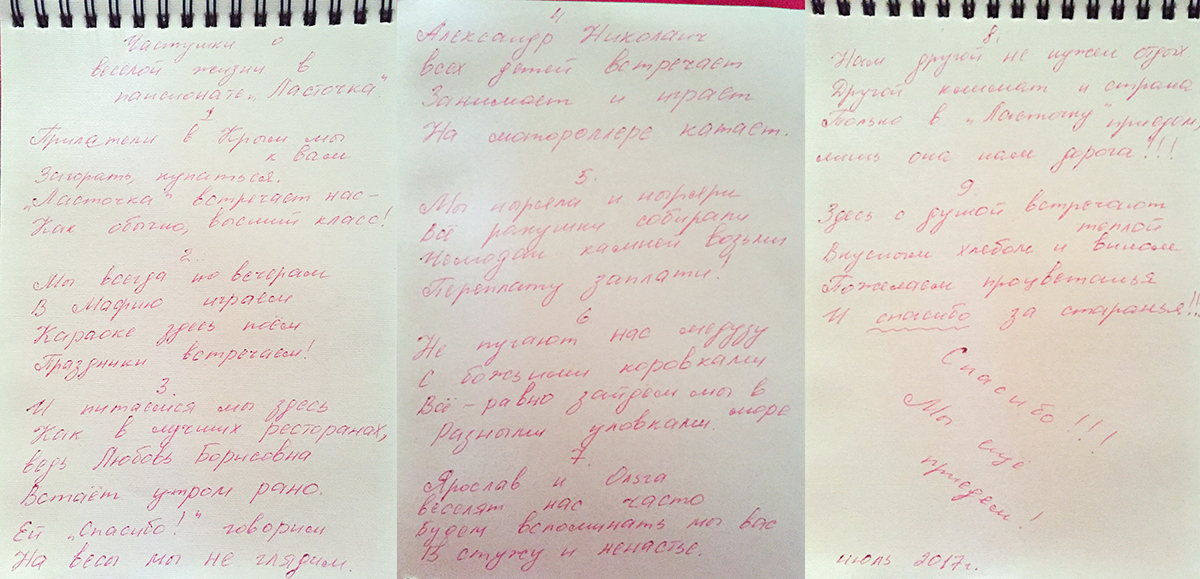 Частушки о
веселой жизни в
пансионате „Ласточка"
1
Прилетели в Крым мы
к вам
Загорать, купаться.
„Ласточка" встречает нас –
Как обычно, высший класс!
2.
Мы всегда по вечерам
В Мафию играем
Караоке здесь поём
Праздники встречаем!
3.
И питаемся мы здесь
Как в лучших ресторанах,
ведь Любовь Борисовна
Встаёт утром рано.
Ей „Спасибо!" говорим
На весы мы не глядим.
4
Александр Николаич
всех детей встречает
Занимает и играет
На мотороллере катает.
5.
Мы ныряли и ныряли
Всё ракушки собирали
Чемодан камней возьми
Переплату заплати!
6.
Не пугают нас медузы
С божьими коровками
Всё – равно зайдем мы в
море
Разными уловками.
7.
Ярослав и Ольга
веселят нас часто
будем вспоминать мы вас
В стужу и ненастье.
8.
Нам другой не нужен отдых
Другой климат и страна
Только в „Ласточку" приедем,
лишь она нам дорога!!!
9.
Здесь с душой встречают
теплой
Вкусным хлебом и вином
Пожелаем процветанья
И спасибо за старанья!!
Спасибо!!!
Мы ещё
приедем!
июль 2017г.